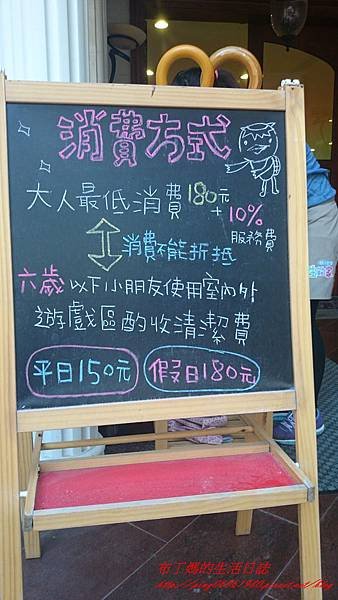 消費方式
大人最低消費180元
+10%
服務費
消費不能折抵
六歲以下小朋友使用室內外
遊戲區酌收清潔費
平日150元 假日180元
布丁媽的生活日誌